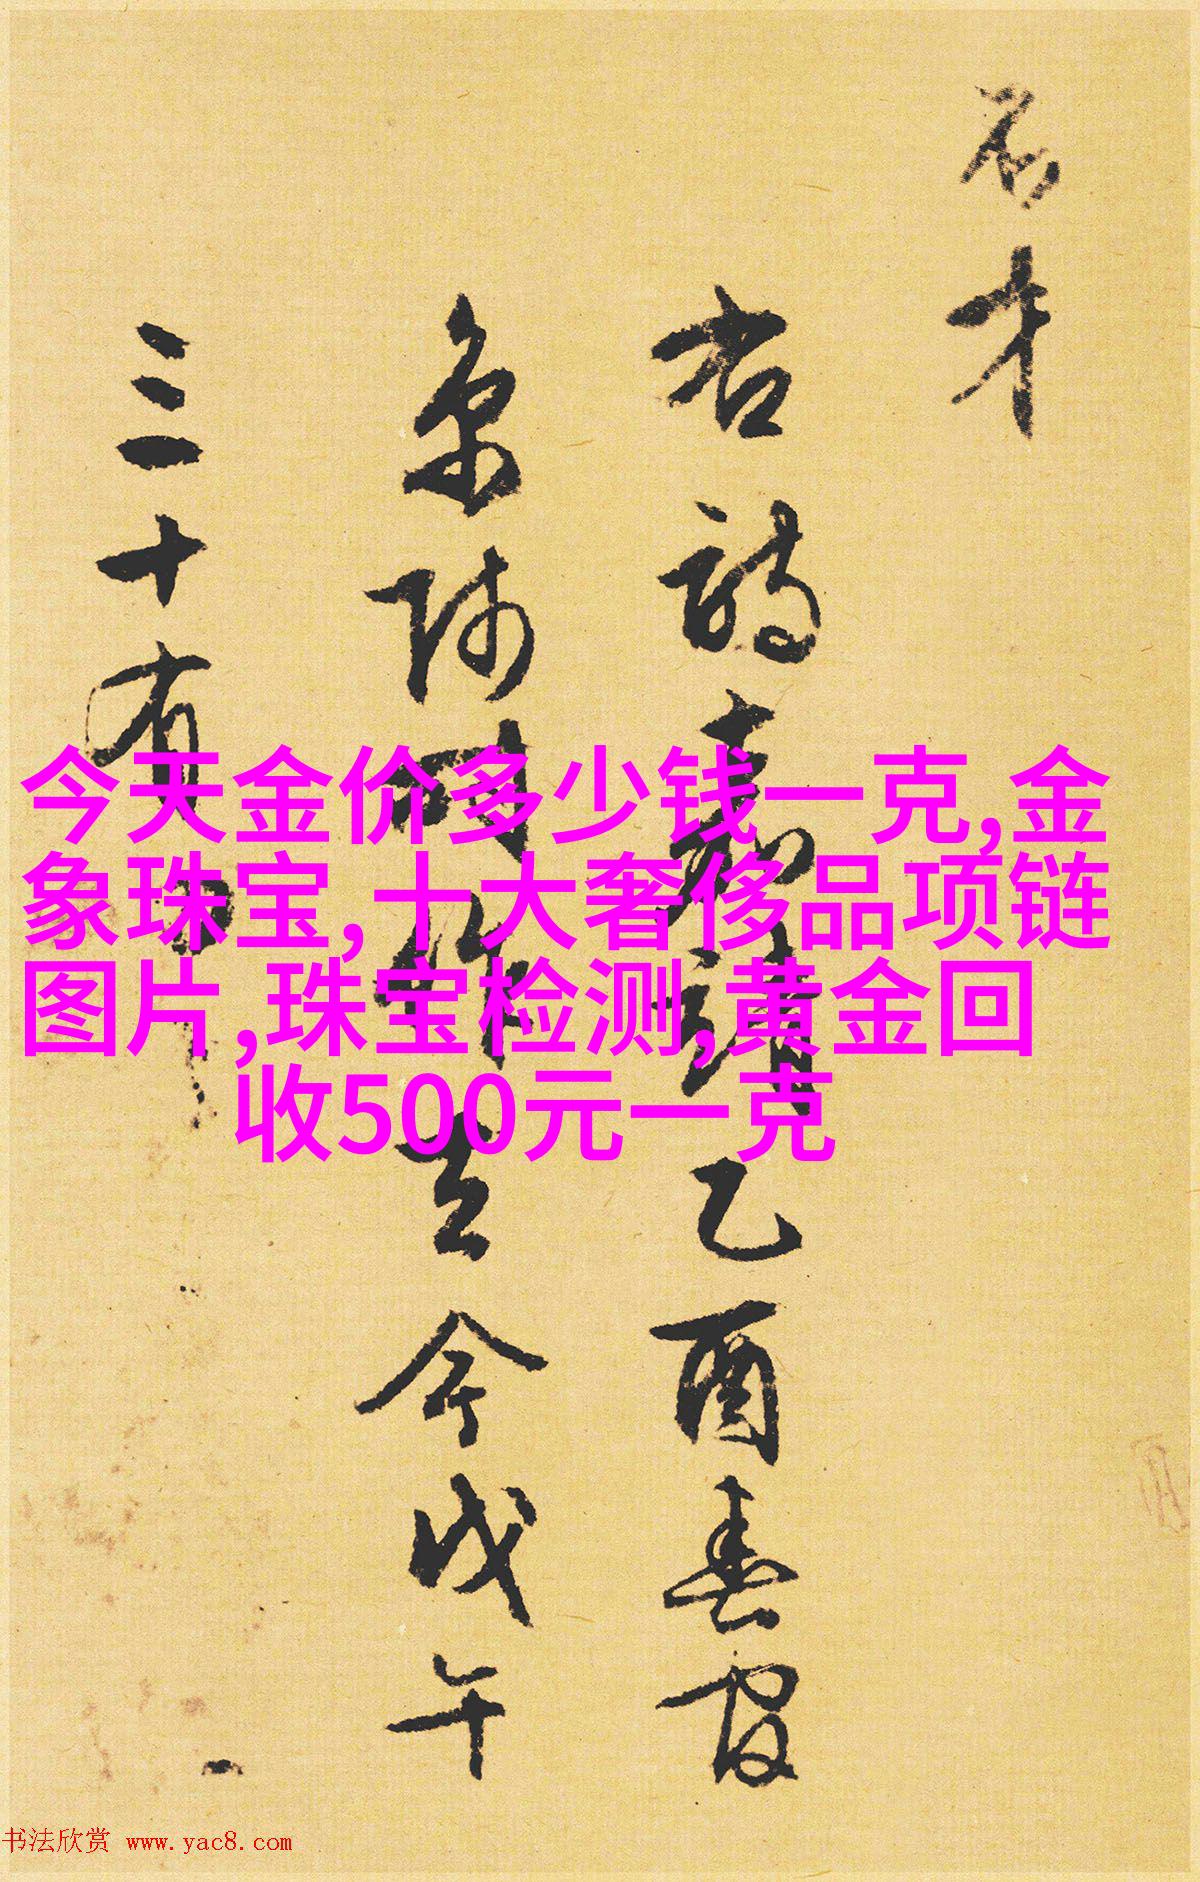 今天金价多少钱一克,金
象珠宝,十大奢侈品项链
图片,珠宝检测,黄金回
收500元一克
才
右詩嘉靖乙酉春寓
京師時作去今戊午
三十有
书法欣赏 www.yac8.com